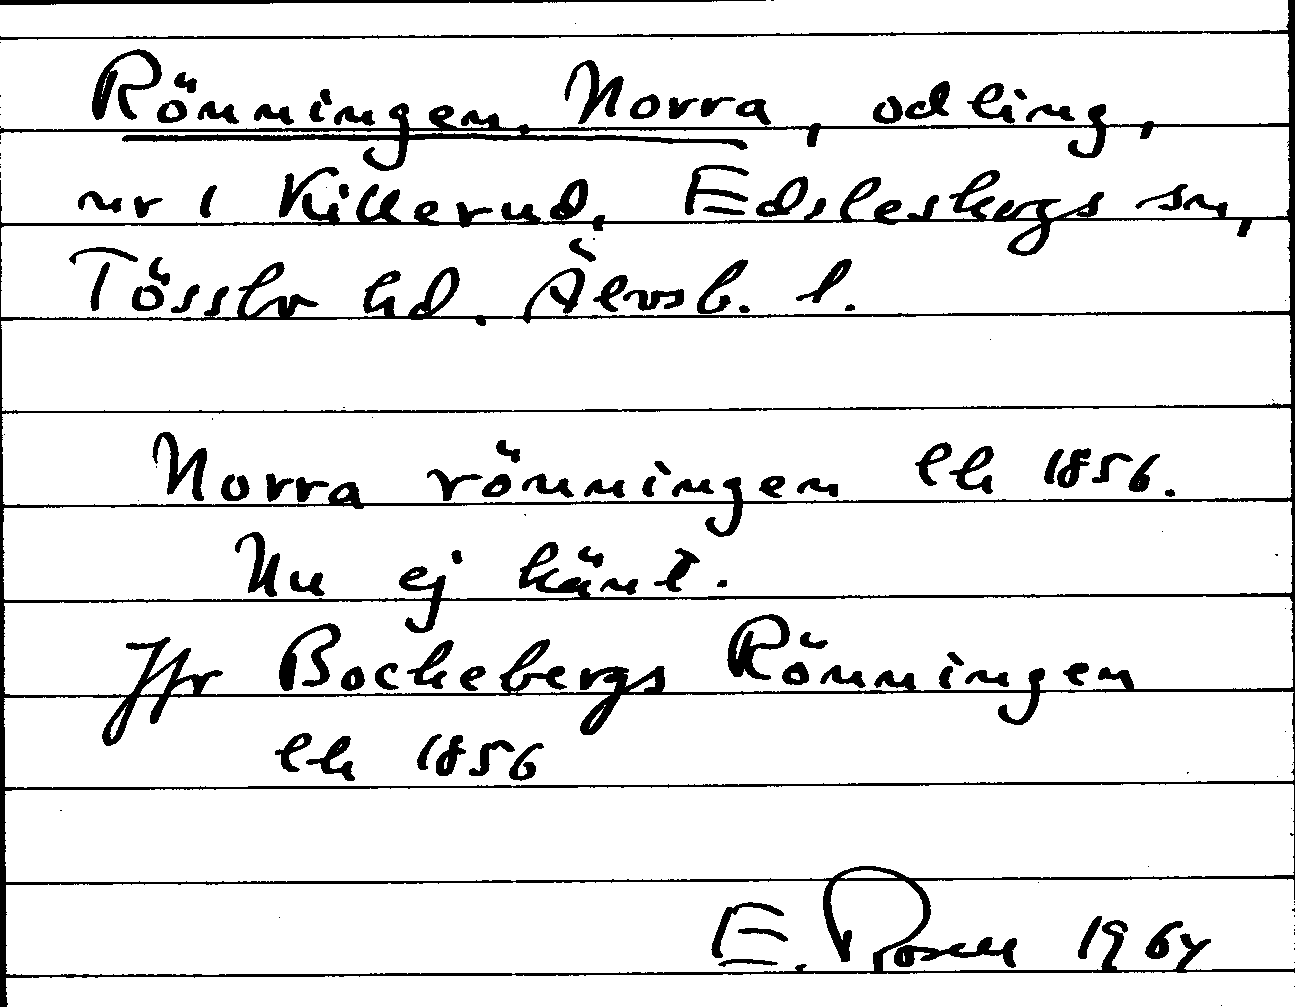 Rönningen, Norra, odling,
nr 1 Killerud, Edsleskogs sn,
Tössbo hd. Älvsb. l.
Norra rönningen lh 1856.
Nu ej känt.
Jfr Bockebergs Rönningen
lh 1856
E. Rosell 1964